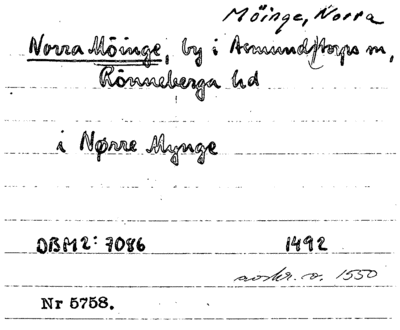 Möinge, Norra
Norra Möinge, by i Asmundstorps sn,
Rönneberga hd
i Nørre Mynge
DBM 2: 7086 1492
avskr. o. 1550
Nr 5758.